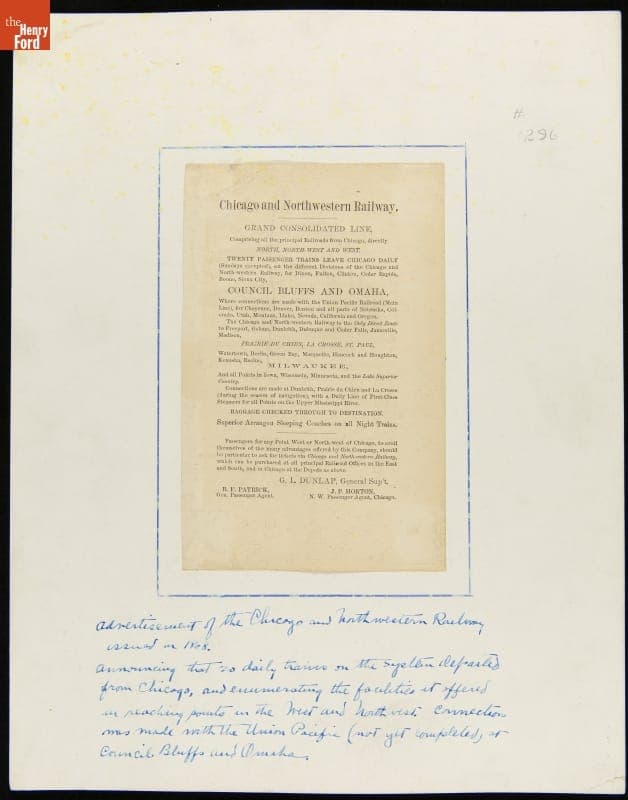 the
Henry
Ford
#
296
Chicago and Northwestern Railway.
GRAND CONSOLIDATED LINE,
Comprising all the principal Railroads from Chicago, directly
NORTH, NORTH-WEST AND WEST.
TWENTY PASSENGER TRAINS LEAVE CHICAGO DAILY
(Sundays excepted), on the different Divisions of the Chicago and
North-western Railway, for Dixon, Fulton, Clinton, Cedar Rapids,
Boone, Sioux City,
COUNCIL BLUFFS AND OMAHA,
Where connections are made with the Union Pacific Railroad (Main
Line), for Cheyenne, Denver, Benton and all parts of Nebraska, Col-
orado, Utah, Montana, Idaho, Nevada, California and Oregon.
The Chicago and North-western Railway is the Only Direct Route
to Freeport, Galena, Dunleith, Dubuque and Cedar Falls, Janesville,
Madison,
PRAIRIE-DU CHIEN, LA CROSSE, ST. PAUL,
Watertown, Berlin, Green Bay, Marquette, Hancock and Houghton,
Kenosha, Racine,
MILWAUKEE,
And all Points in Iowa, Wisconsin, Minnesota, and the Lake Superior
Country.
Connections are made at Dunleith, Prairie du Chien and La Crosse
(during the season of navigation), with a Daily Line of First-Class
Steamers for all Points on the Upper Mississippi River.
BAGGAGE CHECKED THROUGH TO DESTINATION.
Superior Arrangon Sleeping Coaches on all Night Trains.
Passengers for any Point West or North-west of Chicago, to avail
themselves of the many advantages offered by this Company, should
be particular to ask for tickets via Chicago and North-western Railway,
which can be purchased at all principal Railroad Offices in the East
and South, and in Chicago at the Depots as above.
G. L. DUNLAP, General Sup't.
B. F. PATRICK, J. P. HORTON,
Gen. Passenger Agent. N. W. Passenger Agent, Chicago.
Advertisement of the Chicago and Northwestern Railway
issued in 1868.
Announcing that 20 daily trains on the System departed
from Chicago, and enumerating the facilities it offered
in reaching points in the West and Northwest. Connection
was made with the Union Pacific (not yet completed) at
Council Bluffs and Omaha.